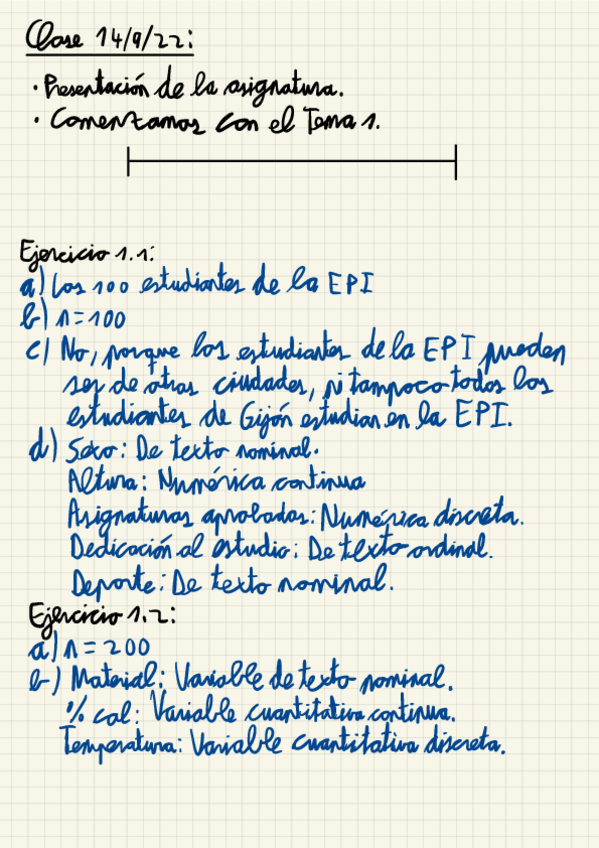 Clase 14/9/22:
· Presentación de la asignatura.
· Comenzamos con el Tema 1.
Ejercicio 1.1:
a) Los 100 estudiantes de la EPI
b) n=100
c) No, porque los estudiantes de la EPI pueden
ser de otras ciudades, ni tampoco todos los
estudiantes de Gijón estudian en la EPI.
d) Sexo: De texto nominal.
Altura: Numérica continua
Asignaturas aprobadas: Numérica discreta.
Dedicación al estudio: De texto ordinal.
Deporte: De texto nominal.
Ejercicio 1.2:
a) n=200
b) Material: Variable de texto nominal.
% cal: Variable cuantitativa continua.
Temperatura: Variable cuantitativa discreta.